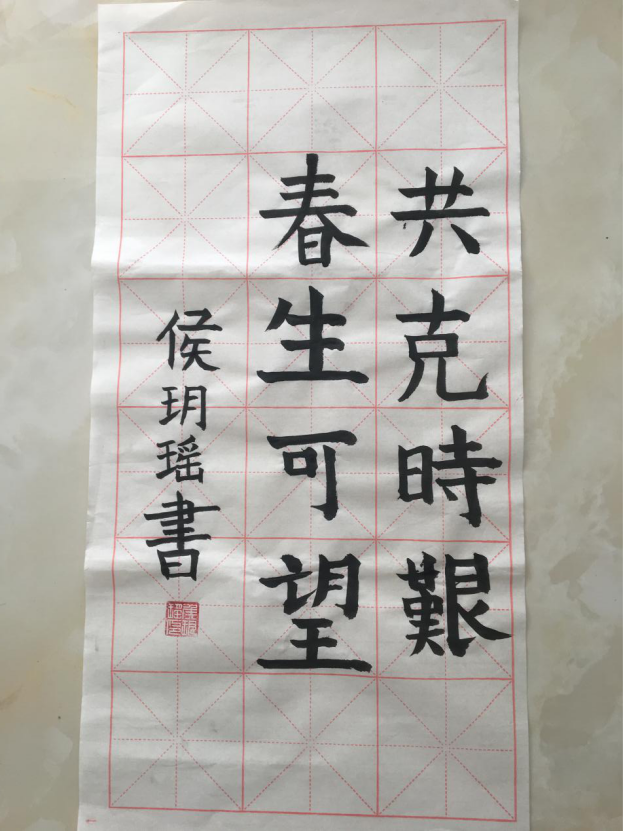 共克時艱
春生可望
侯玥瑶書